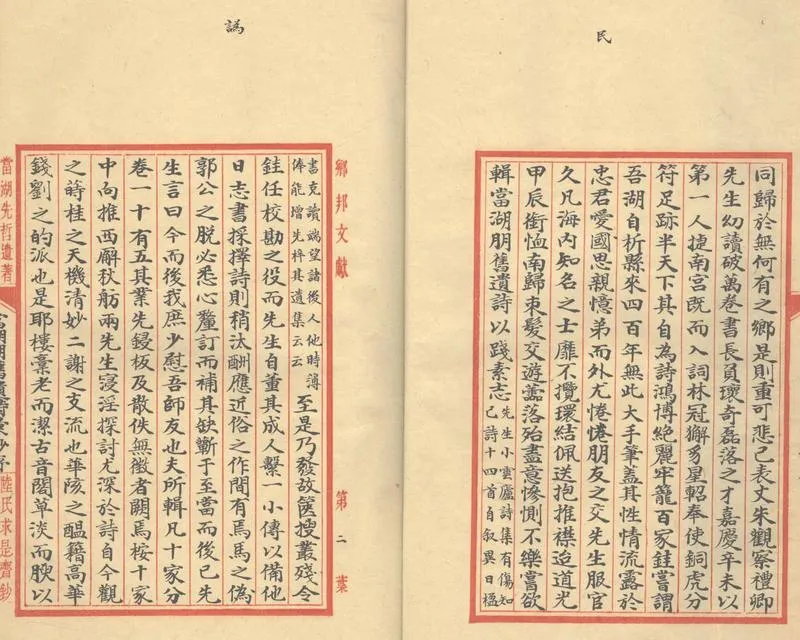 民
同歸於無何有之鄉是則重可悲已表丈朱觀察禮卿
先生幼讀破萬卷書長負瓌奇磊落之才嘉慶辛未以
第一人捷南宮既而入詞林冠獬豸星軺奉使銅虎分
符足跡半天下其自為詩鴻博絕麗牢籠百家銈嘗謂
吾湖自析縣來四百年無此大手筆蓋其性情流露於
忠君愛國思親憶弟而外尤惓惓朋友之交先生服官
久凡海內知名之士靡不攬環結佩送抱推襟迨道光
甲辰銜恤南歸束髮交遊落殆盡意慘惻不樂嘗欲
輯當湖朋舊遺詩以踐素志
先生小雲廬詩集有傷知
己詩十四首自叙異日楹
譌
鄉邦文獻
第二葉
書克讀端望諸後人他時簿
俸能增先梓其遺集云云
至是乃發故篋搜叢殘令
銈任校勘之役而先生自董其成人繫一小傳以備他
日志書採擇詩則稍汰酬應近俗之作間有焉馬之偽
郭公之脫必悉心釐訂而補其缺蘄于至當而後已先
生言曰今而後我庶少慰吾師友也夫所輯凡十家分
卷一十有五其業先鋟板及散佚無徵者闕焉桉十家
中向推西廨秋舫兩先生寖淫探討尤深於詩自今觀
之蒔桂之天機清妙二謝之支流也華陔之醞籍高華
錢劉之的派也是耶樓稾老而潔古音閣草淡而腴以
當湖先哲遺著
陸氏求是齋鈔